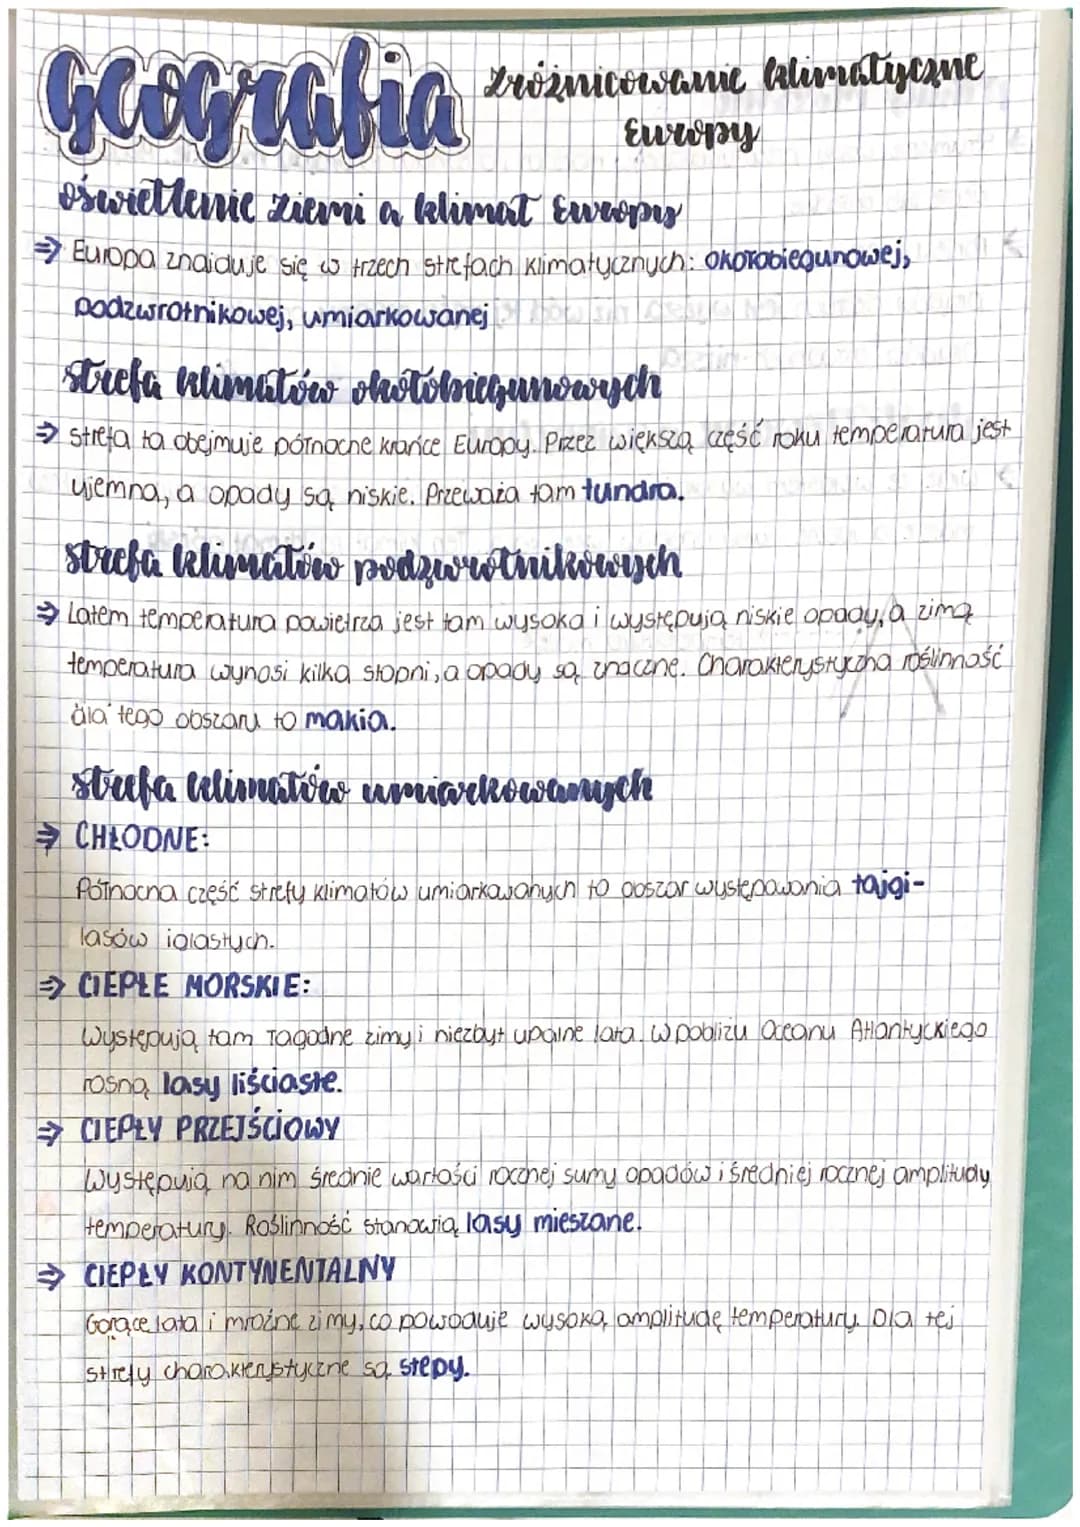 Geografia
Zróżnicowanie klimatyczne
Europy
oświetlenie ziemi a klimat Europy
⇒ Europa znajduje się w trzech strefach klimatycznych: okołobiegunowej,
podzwrotnikowej, umiarkowanej
strefa klimatów okołobiegunowych
⇒ strefa ta obejmuje północne krańce Europy. Przez większą część roku temperatura jest
ujemna, a opady są niskie. Przeważa tam tundra.
strefa klimatów podzwrotnikowych
⇒ Latem temperatura powietrza jest tam wysoka i występują niskie opady, a zimą
temperatura wynosi kilka stopni, a opady są znaczne. Charakterystyczna roślinność
dla tego obszaru to makia.
strefa klimatów umiarkowanych
⇒ CHŁODNE:
Północna część strefy klimatów umiarkowanych to obszar występowania tajgi-
lasów iglastych.
⇒ CIEPŁE MORSKIE:
Występują tam łagodne zimy i niezbyt upalne lata. W pobliżu Oceanu Atlantyckiego
rosną lasy liściaste.
⇒ CIEPŁY PRZEJŚCIOWY
Występują na nim średnie wartości rocznej sumy opadów i średniej rocznej amplitudy
temperatury. Roślinność stanowią lasy mieszane.
⇒ CIEPŁY KONTYNENTALNY
Gorące lata i mroźne zimy, co powoduje wysoką amplitudę temperatury. Dla tej
strefy charakterystyczne są stepy.